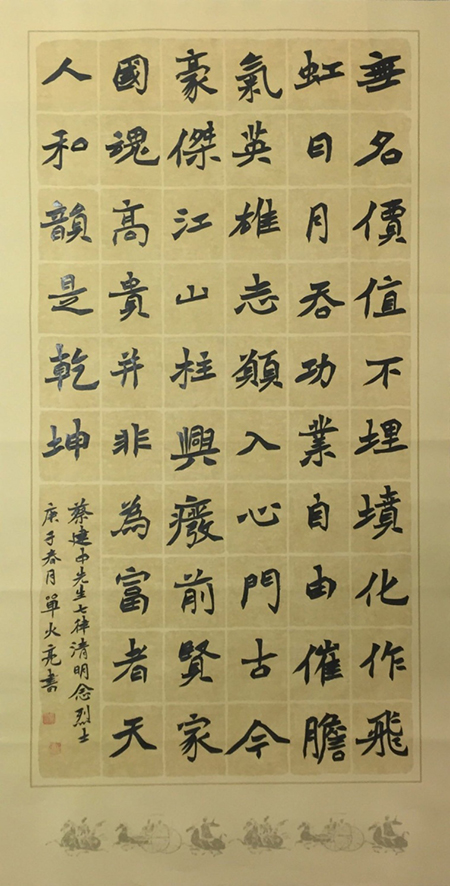 無名價值不埋墳化作飛
虹日月吞功業自由催膽
氣英雄志願入心門古今
豪傑江山柱興癈前賢家
國魂高貴并非為富者天
人和韻是乾坤
蔡建中先生七律清明念烈士
庚子春月單火亮書